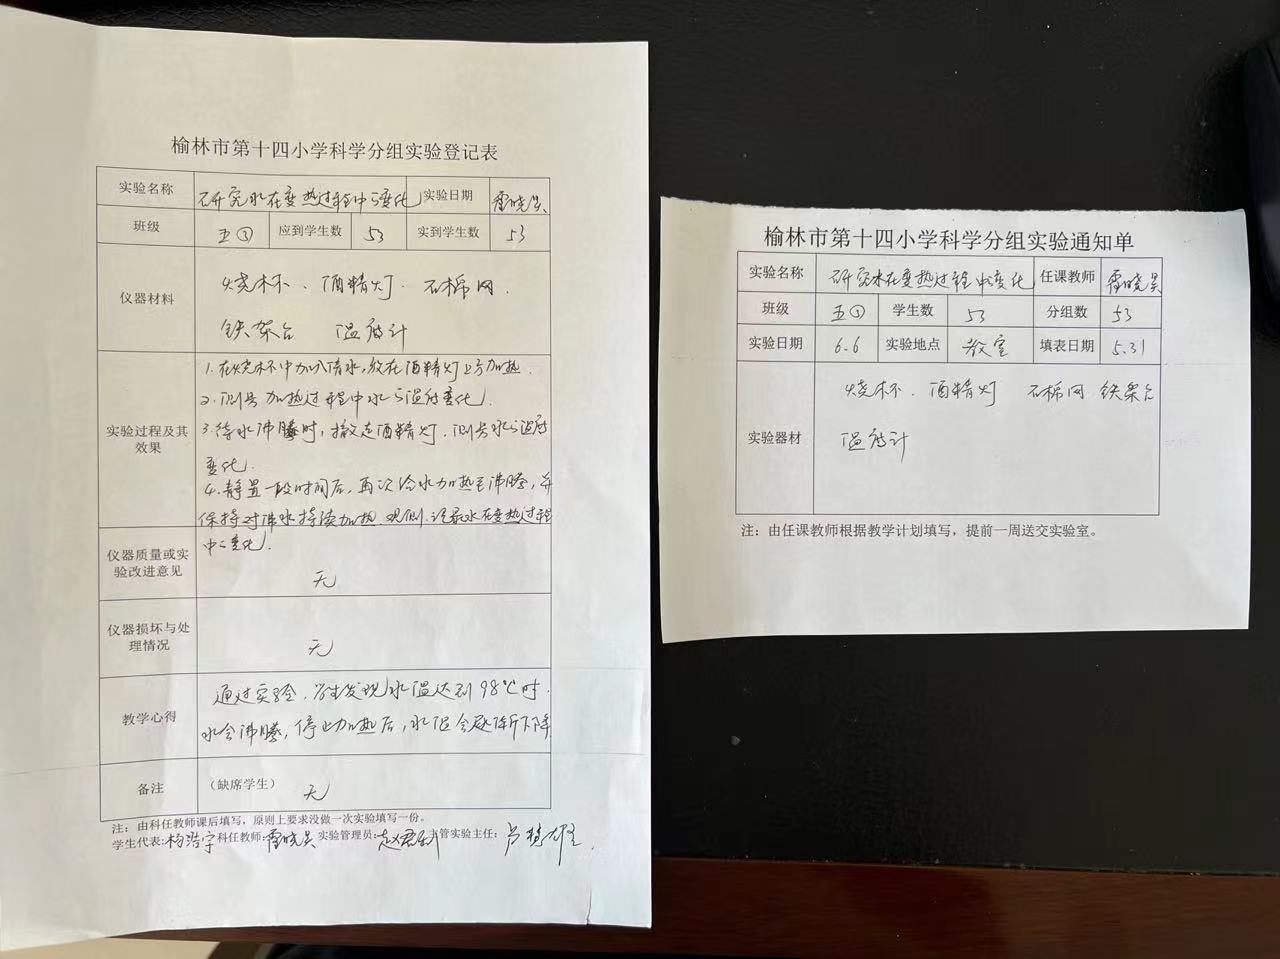 榆林市第十四小学科学分组实验登记表
实验名称 研究水在变热过程中的变化 实验日期 雷晓昊
班级 五③ 应到学生数 53 实到学生数 53
仪器材料
烧杯、酒精灯、石棉网、
铁架台 温度计
实验过程及其效果
1.在烧杯中加入清水,放在酒精灯上方加热.
2.测量加热过程中水的温度变化.
3.待水沸腾时,撤走酒精灯,测量水的温度
变化.
4.静置一段时间后,再次给水加热至沸腾,并
保持对沸水持续加热,观测、记录水在变热过程
中的变化.
仪器质量或实验改进意见
无
仪器损坏与处理情况
无
教学心得
通过实验,学生发现水温达到98℃时,
水会沸腾,停止加热后,水温会逐渐下降
备注 (缺席学生) 无
注:由科任教师课后填写,原则上要求没做一次实验填写一份。
学生代表:杨浩宇 科任教师:雷晓昊 实验管理员: 管实验主任:
榆林市第十四小学科学分组实验通知单
实验名称 研究水在变热过程中变化 任课教师 雷晓昊
班级 五③ 学生数 53 分组数 53
实验日期 6.6 实验地点 教室 填表日期 5.31
实验器材
烧杯、酒精灯 石棉网 铁架台
温度计
注:由任课教师根据教学计划填写,提前一周送交实验室。